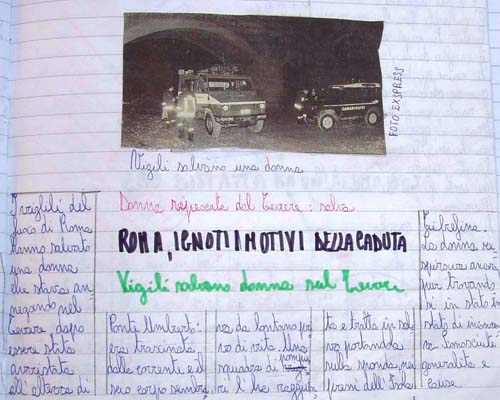 CARABINIERI
FOTO EXSPRESS
Vigili salvano una donna
Donna ripescata dal Tevere: salva
ROMA, IGNOTI I MOTIVI DELLA CADUTA
Vigili salvano donna sul Tevere
I vigili del
fuoco di Roma
hanno salvato
una donna
che stava an-
negando nel
Tevere, dopo
essere stata
avvistata
all'altezza di
Ponte Umberto:
era trascinata
dalla corrente e il
suo corpo sembra-
va da lontano pri-
vo di vita. Una
squadra di pompie
ri l'ha raggiun
ta e tratta in sal
vo portandola
sulla sponda, nei
pressi dell'Isola
Tiberina.
La donna re-
spirava ancora
pur trovando
si in stato
stato di incoscien
za. Sconosciute
generalità e
cause.